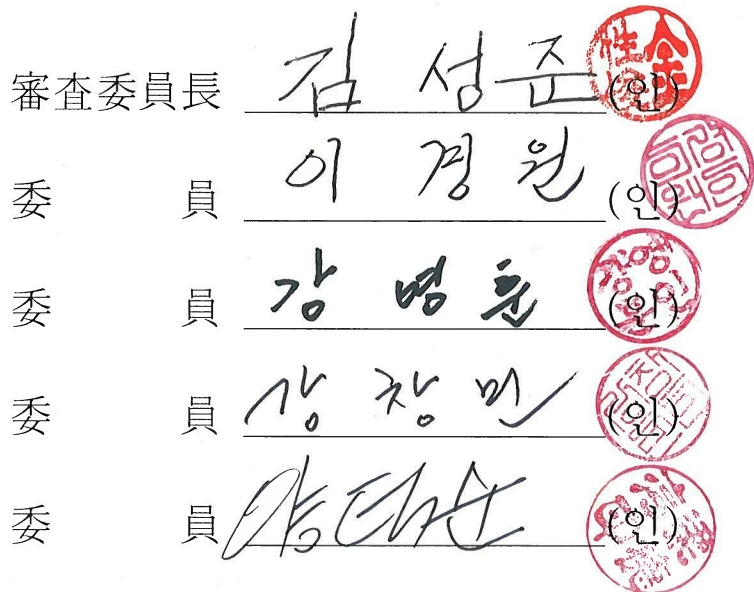 審査委員長 김 성 준 (인)
委 員 이 경 원 (인)
委 員 강 명 훈 (인)
委 員 강 창 민 (인)
委 員 (인)